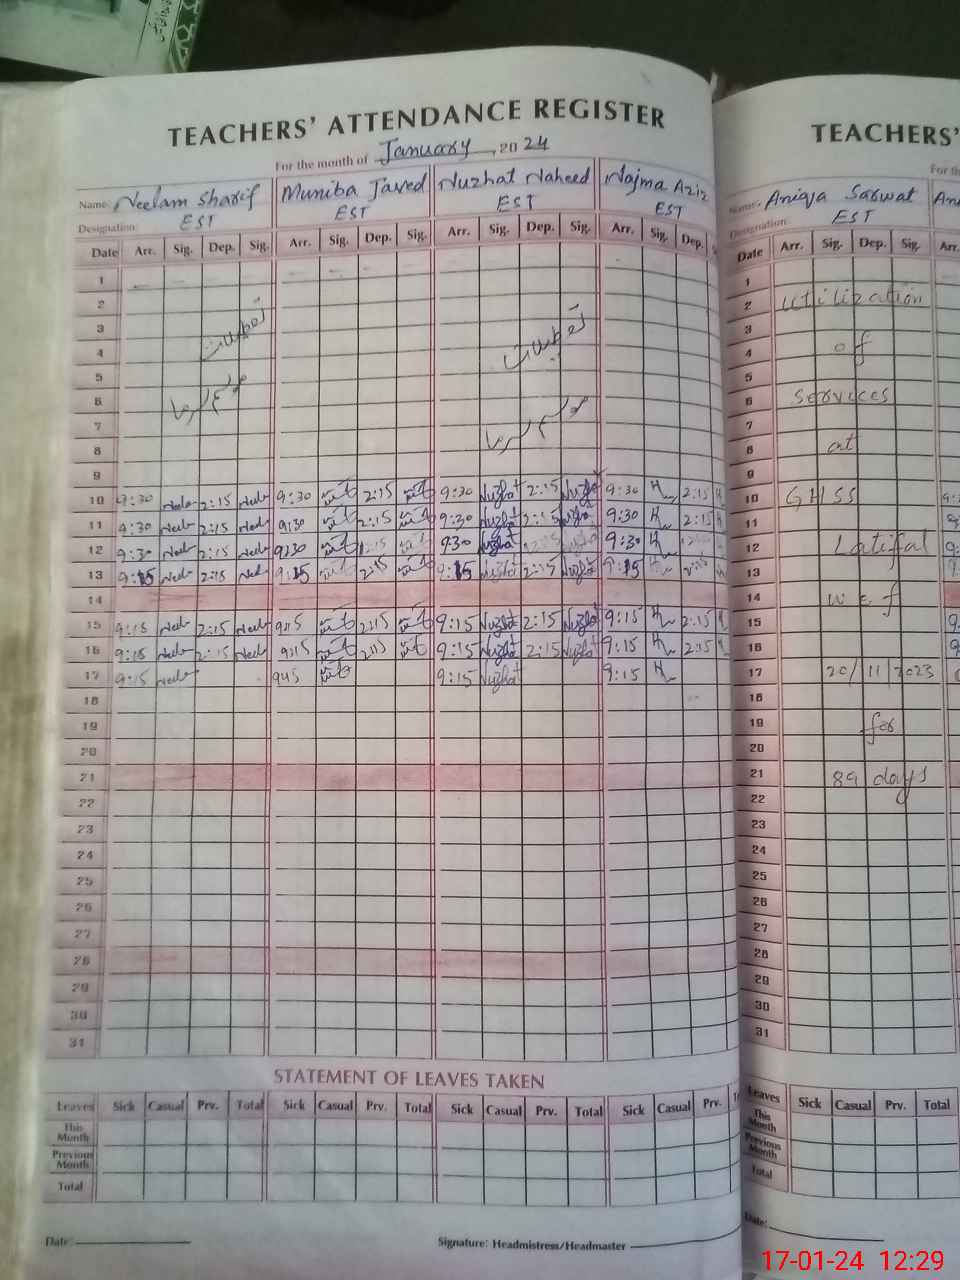 TEACHERS' ATTENDANCE REGISTER
For the month of January, 20 24
Name: Neelam Sharif Muniba Javed Nuzhat Naheed Najma Aziz
Designation: EST EST EST EST
Date Arr. Sig. Dep. Sig. Arr. Sig. Dep. Sig. Arr. Sig. Dep. Sig. Arr. Sig. Dep.
1
2
3 تعطیلات تعطیلات
4
5
6 موسم سرما موسم سرما
7
8
9
10 9:30 Neel 2:15 Neel 9:30 2:15 9:30 Nuzhat 2:15 Nuzhat 9:30 2:15
11 9:30 Neel 2:15 Neel 9:30 2:15 9:30 Nuzhat 2:15 Nuzhat 9:30 2:15
12 9:30 Neel 2:15 Neel 9:30 2:15 9:30 Nuzhat 9:30
13 9:15 Neel 2:15 Neel 9:15 2:15 9:15 Nuzhat 2:15 Nuzhat 9:15
14
15 9:15 Neel 2:15 Neel 9:15 2:15 9:15 Nuzhat 2:15 Nuzhat 9:15 2:15
16 9:15 Neel 2:15 Neel 9:15 2:15 9:15 Nuzhat 2:15 Nuzhat 9:15 2:15
17 9:15 Neel 9:15 Nuzhat 9:15
18
19
20
21
22
23
24
25
26
27
28
29
30
31
STATEMENT OF LEAVES TAKEN
Leaves Sick Casual Prv. Total Sick Casual Prv. Total Sick Casual Prv. Total Sick Casual Prv.
This Month
Previous Month
Total
Date: Signature: Headmistress/Headmaster
TEACHERS'
For th
Name: Aniqa Sarwat
Designation: EST
Date Arr. Sig. Dep. Sig. Arr.
1
2 Utilization
3
4 of
5
6 Services
7
8 at
9
10 GHSS
11
12 Latifal
13
14 w e f
15
16
17 20/11/2023
18
19 for
20
21 89 days
22
23
24
25
26
27
28
29
30
31
Leaves Sick Casual Prv. Total
This Month
Previous Month
Total
Date:
17-01-24 12:29